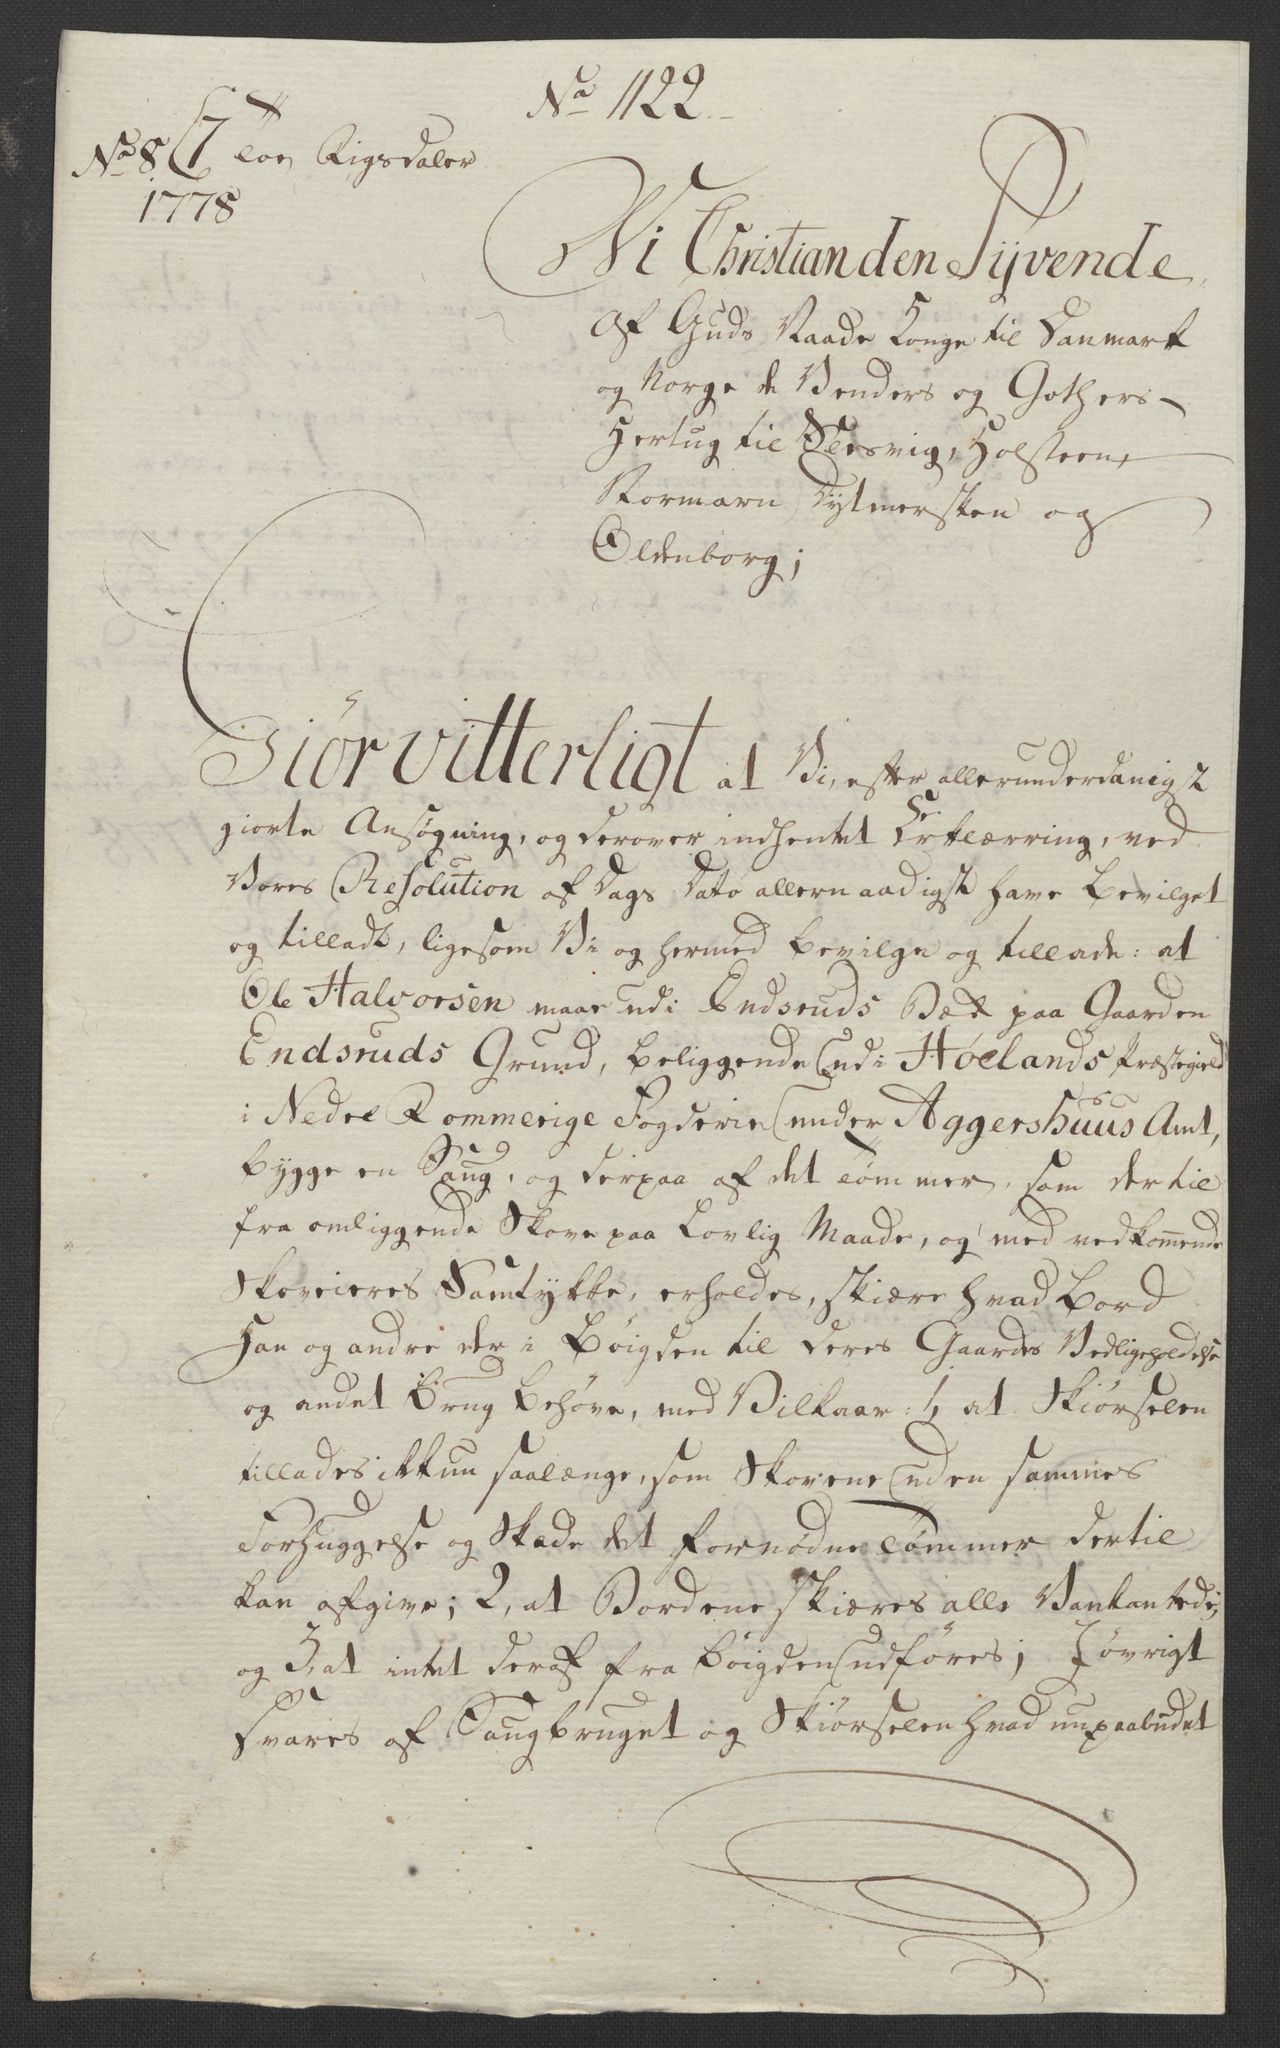 No 1122
No 8 Toe Rigsdaler
1778
Wi Christian den Syvende,
af Guds Naade Konge til Danmark
og Norge de Venders og Gothers
Hertug til Slesvig, Holsteen,
Stormarn Dytmersken og
Oldenborg;
Giör vitterligt at Vi, efter allerunderdanigst
giorte Ansøgning, og derover indhentet Erklærring, ved
Vores Resolution af Dags Dato allernaadigst have bevilget
og tilladt, ligesom Vi og hermed bevilge og tillade: at
Ole Halvorsen maae udi Endsruds Bæk paa Gaarden
Endsruds Grund, beliggende udi Høelands Præstegield
i Nedre Rommerige Fogderie under Aggershuus Amt,
bygge en Saug, og derpaa af det Tømmer, som dertil
fra omliggende Skove paa Lovlig Maade, og med vedkom̅ende
Skoveieres Samtykke, erholdes, skiære hvad Bord
Han og andre der i Bøigden til deres Gaardes Vedligeholdelse
og andet Brug behøve, med Vilkaar: 1, at Skiørselen
tillades ikkun saalænge, som Skovene uden sammes
Forhuggelse og Skade det fornødne Tømmer dertil
kan afgive; 2, at Bordene skiæres alle Vankantede;
og 3, at intet deraf fra Bøigden udføres; I øvrigt
svares af Saugbruget og Skiørselen hvad nu paabudet